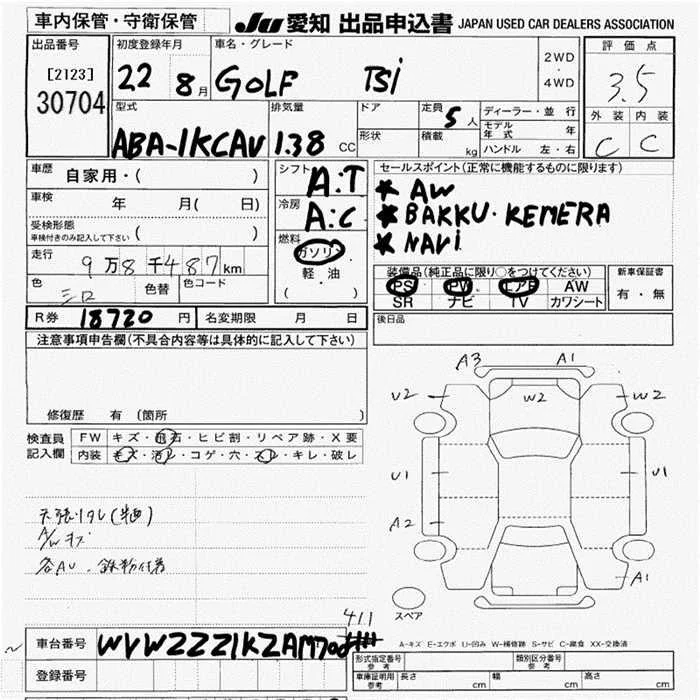 車内保管・守衛保管
JU 愛知 出品申込書 JAPAN USED CAR DEALERS ASSOCIATION
出品番号
[2123]
30704
初度登録年月
22 8月
車名・グレード
GOLF TSi
2WD
・
4WD
評価点
3.5
外装 内装
C C
型式
ABA-1KCAV
排気量
1.38 CC
ドア
形状
定員
5人
積載
kg
ディーラー・並行
モデル年式 年
ハンドル 左・右
車歴 自家用・( )
車検 年 月( 日)
受検形態
車検付きのみ記入して下さい ( )
走行 9万8千487km
色 シロ 色替 色コード
シフト
A:T
冷房
A:C
燃料
ガソリン
軽・油
( )
セールスポイント(正常に機能するものに限ります)
★ AW
★ BAKKU・KEMERA
★ NAVi
装備品(純正品に限り○をつけてください)
PS PW エアB AW
SR ナビ TV カワシート
新車保証書
有・無
R券 18720 円 名変期限 月 日
後日品
注意事項申告欄(不具合内容等は具体的に記入して下さい)
修復歴 有 (箇所 )
検査員
記入欄
FW キズ・飛石・ヒビ割・リペア跡・X要
内装 キズ・汚レ・コゲ・穴・スレ・キレ・破レ
A3 A1
U2 W2 W2
U1 U1
A2
A1
スペア
天張りタレ
A/W キズ
各AU・鉄粉付着
411
A-キズ E-エクボ U-凹み W-補修跡 S-サビ C-腐食 XX-交換済
車台番号 WVWZZZ1KZAM70
登録番号
形式指定番号
参考
類別区分番号
参考
車庫証明用
参考
長さ cm 幅 cm 高さ cm